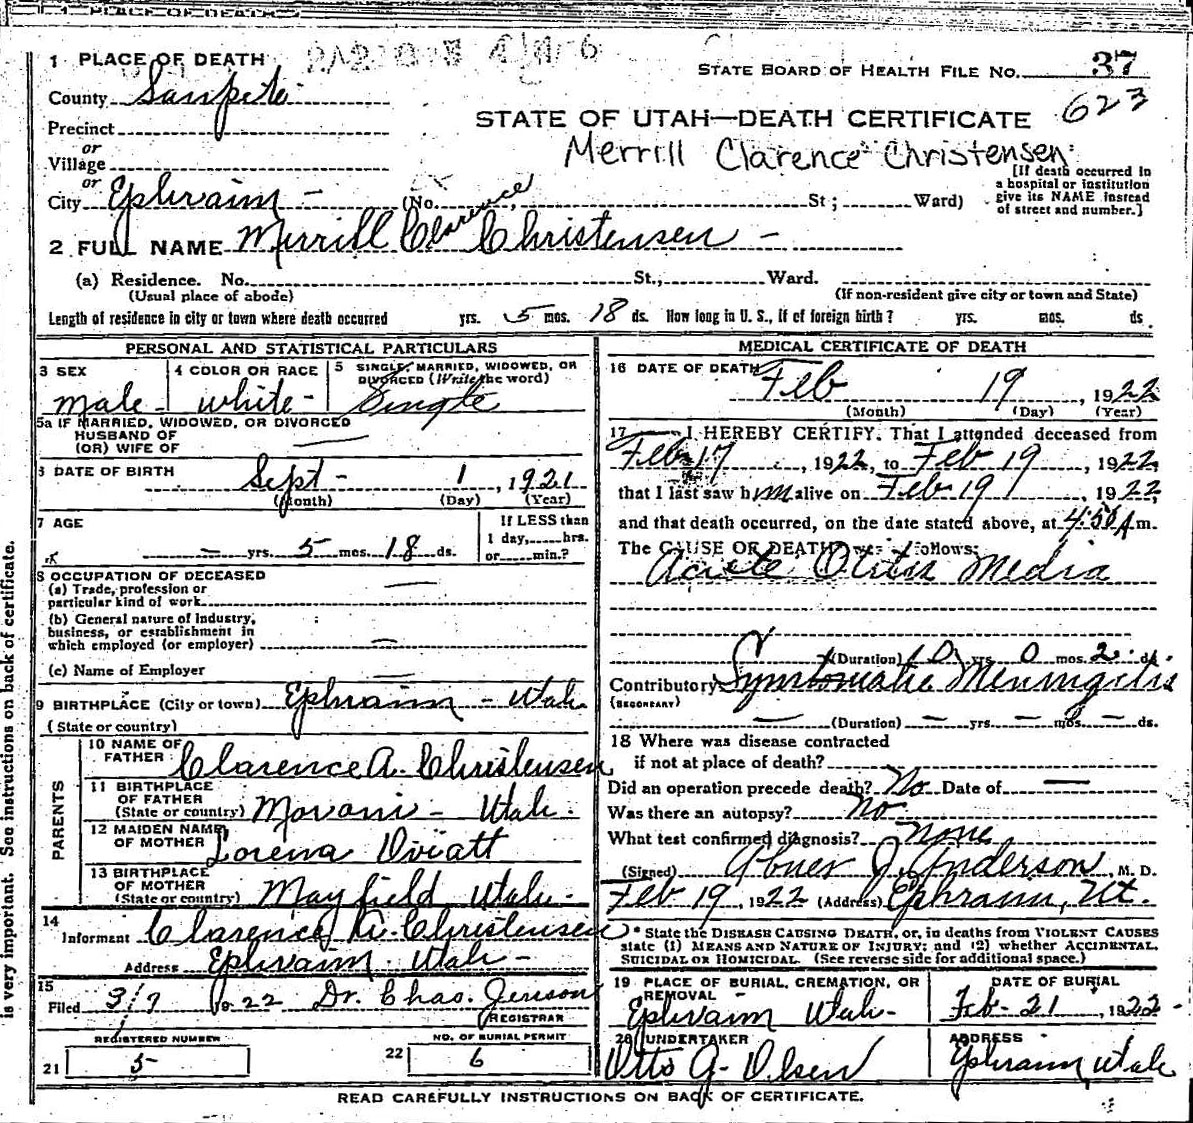 1 PLACE OF DEATH
STATE BOARD OF HEALTH FILE NO. 37
County Sanpete
623
STATE OF UTAH—DEATH CERTIFICATE
Precinct
or
Village
Merrill Clarence Christensen
or
City Ephraim - (No. St; Ward)
[If death occurred in a hospital or institution give its NAME instead of street and number.]
2 FULL NAME Merrill Clarence Christensen -
(a) Residence. No. St., Ward.
(Usual place of abode)
(If non-resident give city or town and State)
Length of residence in city or town where death occurred yrs. 5 mos. 18 ds. How long in U. S., if of foreign birth? yrs. mos. ds.
PERSONAL AND STATISTICAL PARTICULARS
3 SEX
male -
4 COLOR OR RACE
white -
5 SINGLE, MARRIED, WIDOWED, OR DIVORCED (Write the word)
Single
5a IF MARRIED, WIDOWED, OR DIVORCED
HUSBAND OF
(OR) WIFE OF
6 DATE OF BIRTH
Sept - 1, 1921
(Month) (Day) (Year)
7 AGE
— yrs. 5 mos. 18 ds.
If LESS than
1 day, hrs.
or min.?
8 OCCUPATION OF DECEASED
(a) Trade, profession or
particular kind of work
(b) General nature of industry,
business, or establishment in
which employed (or employer)
(c) Name of Employer
9 BIRTHPLACE (City or town) Ephraim - Utah
(State or country)
PARENTS
10 NAME OF
FATHER Clarence A. Christensen
11 BIRTHPLACE
OF FATHER
(State or country) Moroni - Utah.
12 MAIDEN NAME
OF MOTHER Lorena Oviatt
13 BIRTHPLACE
OF MOTHER
(State or country) Mayfield Utah -
14
Informent Clarence A. Christensen
Address Ephraim - Utah -
15
Filed 3/7 1922 Dr. Chas. Jenson
REGISTRAR
REGISTERED NUMBER
21 5
NO. OF BURIAL PERMIT
22 6
MEDICAL CERTIFICATE OF DEATH
16 DATE OF DEATH
Feb 19, 1922
(Month) (Day) (Year)
17 I HEREBY CERTIFY, That I attended deceased from
Feb 17, 1922, to Feb 19, 1922
that I last saw him alive on Feb 19, 1922,
and that death occurred, on the date stated above, at 4:50 A m.
The CAUSE OF DEATH was as follows:
Acute Otitis Media
(Duration) 0 yrs 0 mos. 2 ds.
Contributory Symtomatic Meningitis
(SECONDARY)
— (Duration) — yrs. — mos. — ds.
18 Where was disease contracted
if not at place of death?
Did an operation precede death? No Date of —
Was there an autopsy? No
What test confirmed diagnosis? None
(Signed) Abner J. Anderson, M. D.
Feb 19, 1922 (Address) Ephraim, Ut.
* State the DISEASE CAUSING DEATH, or, in deaths from VIOLENT CAUSES
state (1) MEANS AND NATURE OF INJURY; and (2) whether ACCIDENTAL,
SUICIDAL OR HOMICIDAL. (See reverse side for additional space.)
19 PLACE OF BURIAL, CREMATION, OR
REMOVAL -
Ephraim Utah -
DATE OF BURIAL
Feb - 21, 1922 -
20 UNDERTAKER
Otto A. Olsen
ADDRESS
Ephraim, Utah
READ CAREFULLY INSTRUCTIONS ON BACK OF CERTIFICATE.
is very important. See instructions on back of certificate.